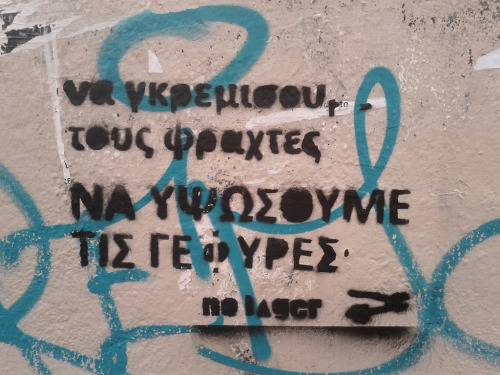 να γκρεμισου
τους φραχτες
ΝΑ ΥΨΩΣΟΥΜΕ
ΤΙΣ ΓΕΦΥΡΕΣ·
no lager